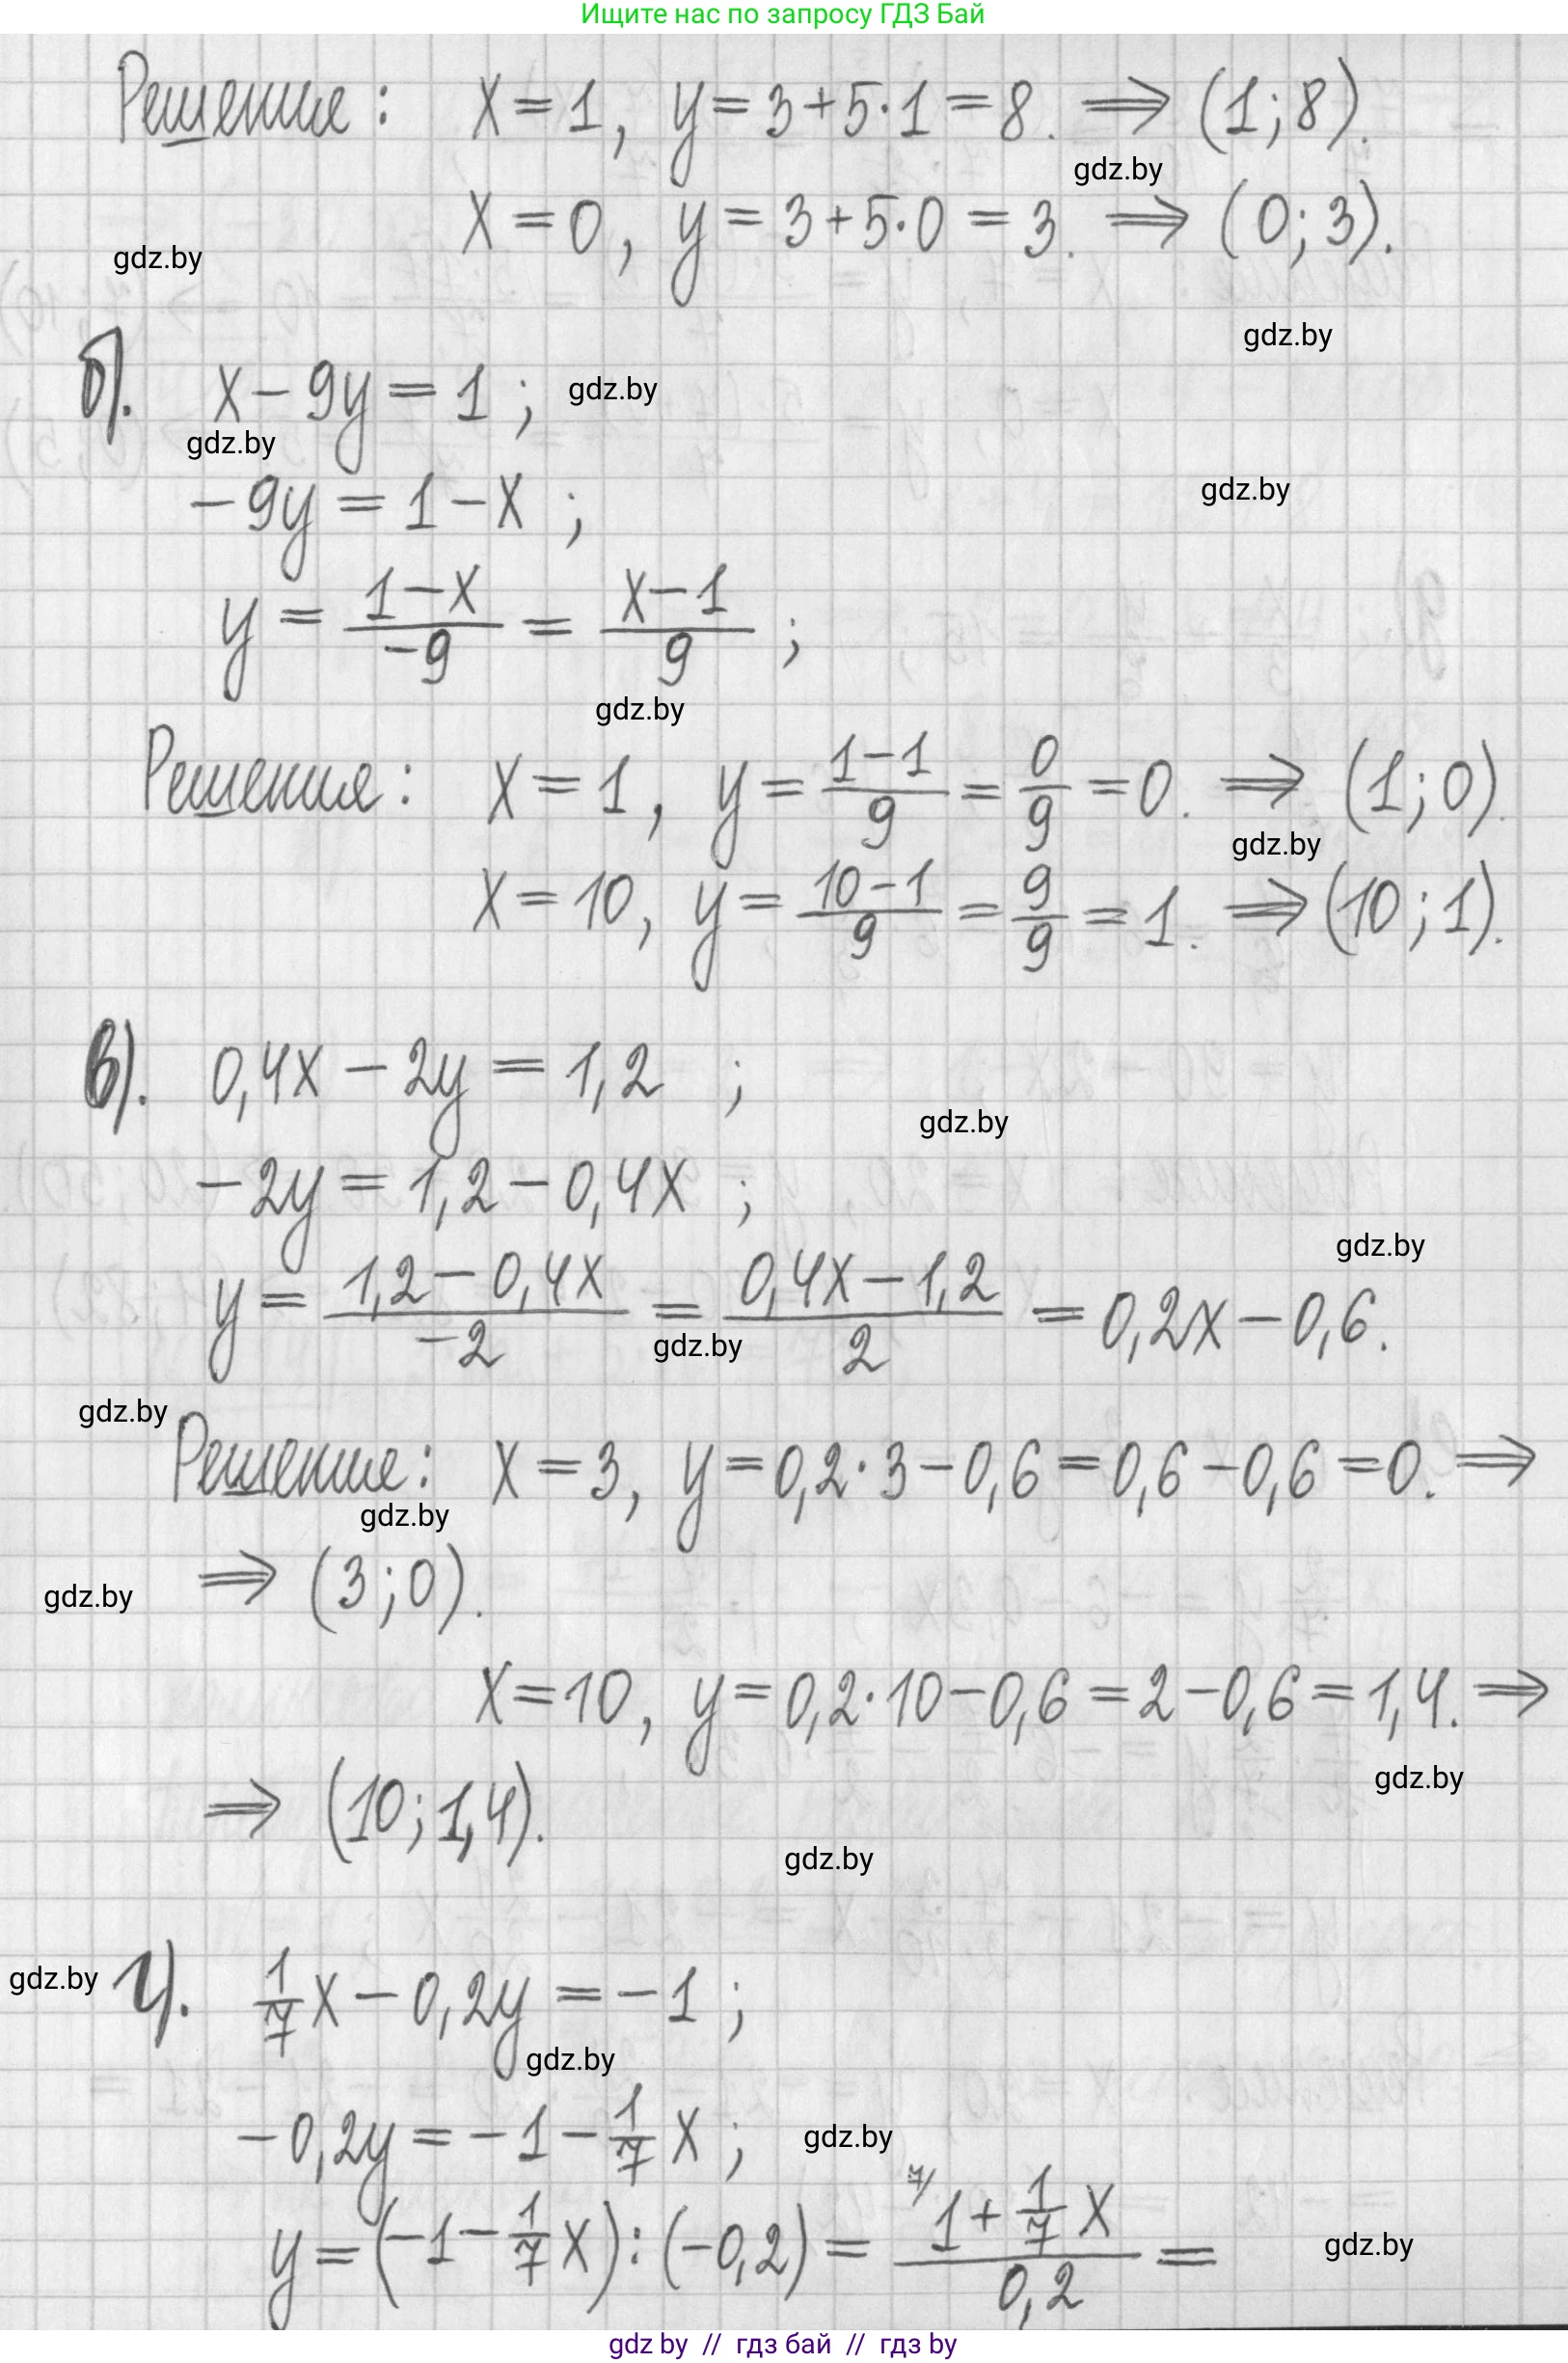 Ищите нас по запросу ГДЗ Бай
Решение: x = 1, y = 3 + 5·1 = 8. ⇒ (1; 8).
gdz.by
x = 0, y = 3 + 5·0 = 3. ⇒ (0; 3).
gdz.by
gdz.by
б). x − 9y = 1 ;
gdz.by
gdz.by
gdz.by
−9y = 1 − x ;
y = (1 − x)/(−9) = (x − 1)/9 ;
gdz.by
Решения: x = 1, y = (1 − 1)/9 = 0/9 = 0. ⇒ (1; 0).
gdz.by
x = 10, y = (10 − 1)/9 = 9/9 = 1. ⇒ (10; 1).
в). 0,4x − 2y = 1,2 ;
gdz.by
−2y = 1,2 − 0,4x ;
gdz.by
y = (1,2 − 0,4x)/(−2) = (0,4x − 1,2)/2 = 0,2x − 0,6.
gdz.by
gdz.by
Решение: x = 3, y = 0,2·3 − 0,6 = 0,6 − 0,6 = 0. ⇒
gdz.by
⇒ (3; 0).
gdz.by
x = 10, y = 0,2·10 − 0,6 = 2 − 0,6 = 1,4. ⇒
gdz.by
⇒ (10; 1,4).
gdz.by
gdz.by
г). 1/7 x − 0,2y = −1 ;
gdz.by
−0,2y = −1 − 1/7 x ;
gdz.by
y = (−1 − 1/7 x) : (−0,2) = (7/ 1 + 1/7 x)/0,2 =
gdz.by
gdz by // гдз бай // гдз by